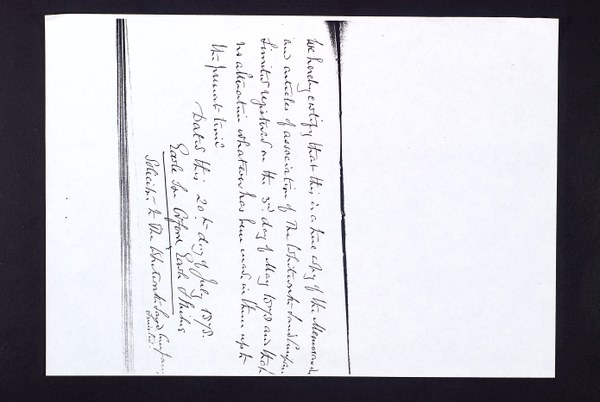 We hereby certify that this is a true copy of the Memorand
and articles of association of The Whiteonbi Land Compan
Limited registered on the 3rd day of May 1878 and that
no alteration whatever has been made in them up to
the present time
Dated this 20th day of July 1878.
Earle Son Orford Earle &
Solicitors to The Land Company
Limited